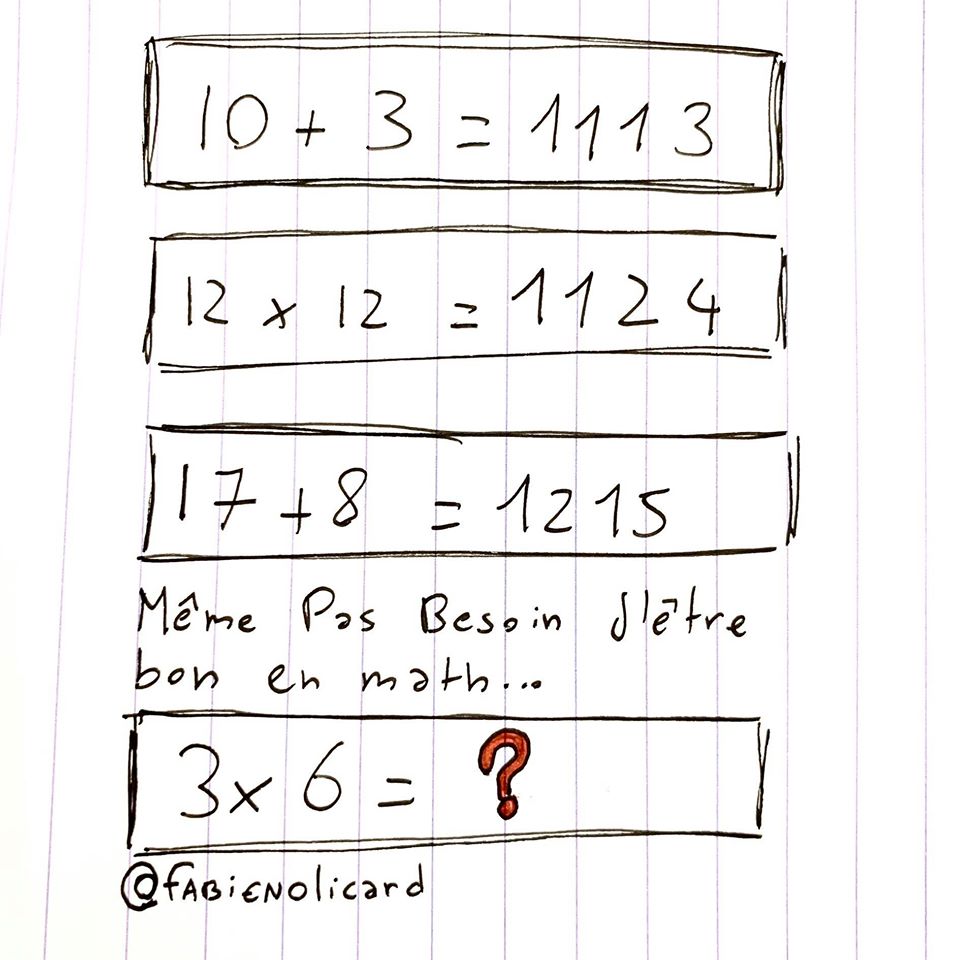 10 + 3 = 1113
12 x 12 = 1124
17 + 8 = 1215
Même Pas Besoin d'être
bon en math...
3 x 6 = ?
@fABiENOlicard